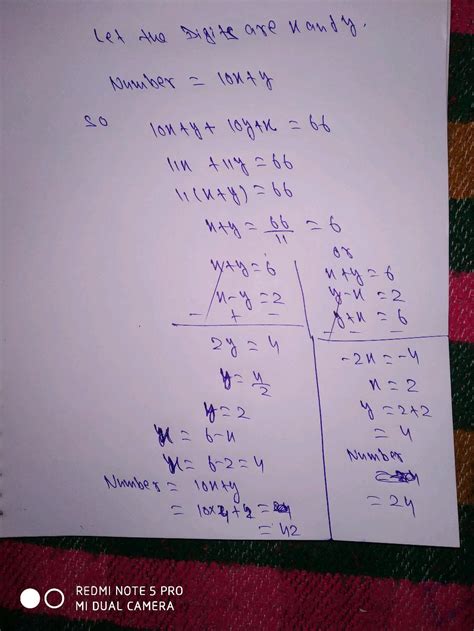 Let the Digits are x and y.
Number = 10x+y
so
10x+y+10y+x = 66
11x + 11y = 66
11(x+y) = 66
x+y = 66/11 = 6
x+y = 6
x-y = 2
- + -
2y = 4
y = 4/2
y = 2
x = 6-x
x = 6-2 = 4
Number = 10x+y
= 10×4+2 =
= 42
or
x+y = 6
y-x = 2
y+x = 6
- - -
-2x = -4
x = 2
y = 2+2
= 4
Number
= 24
REDMI NOTE 5 PRO
MI DUAL CAMERA